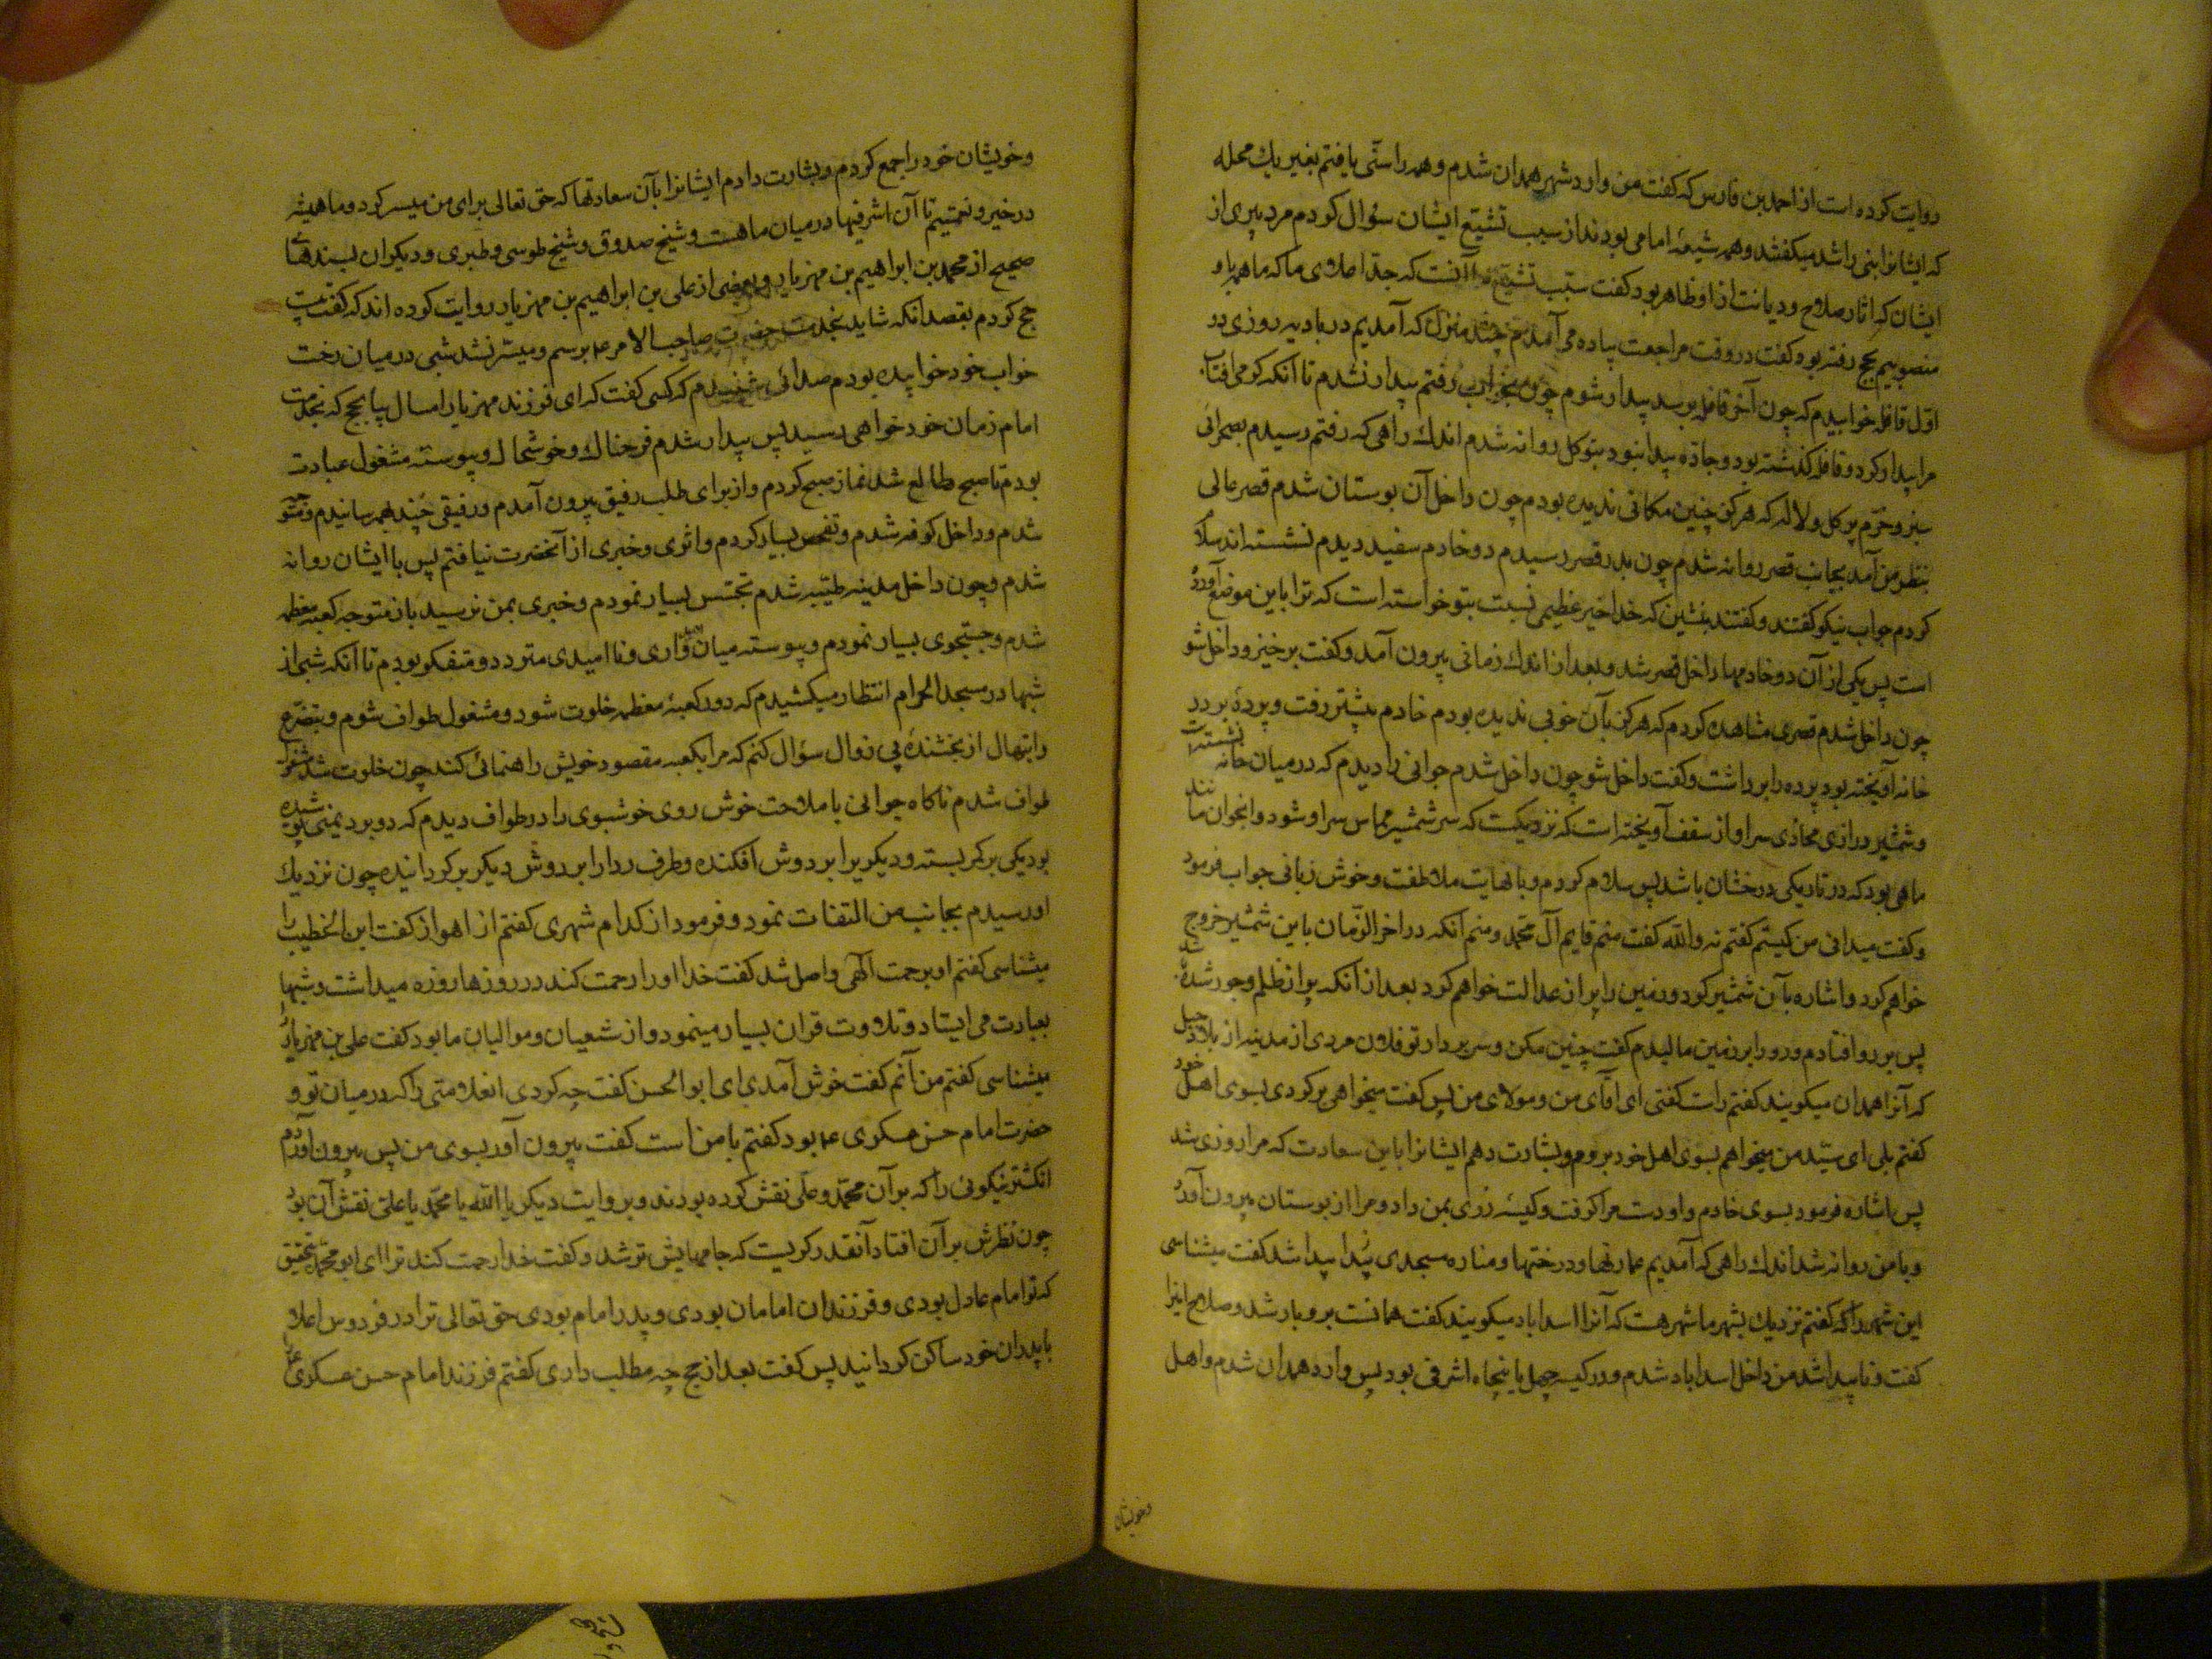 روایت کرده است از احمد بن فارس که گفت من وارد شهر همدان شدم و همه را سنّی یافتم بغیر یك محله
که ایشانرا بنی راشد میگفتند و همه شیعهٔ امامی بودند از سبب تشیّع ایشان سؤال کردم مرد پیری از
ایشان که اثار صلاح و دیانت از او ظاهر بود گفت سبب تشیّع ما آنست که جدّ اعلای ما که ما همه باو
منصوبیم بحج رفته بود گفت در وقت مراجعت پیاده می آمدم چند منزل که آمدیم در بادیه روزی در
اوّل قافله خوابیدم که چون آخر قافله برسد بیدار شوم چون بخواب رفتم بیدار نشدم تا آنکه گرمی افتاب
مرا بیدار کرد و قافله گذشته بود و جادّه پیدا نبود بتوکل روانه شدم اندك راهی که رفتم رسیدم بصحرائی
سبز و خرّم پر گل و لاله که هرگز چنین مکانی ندیده بودم چون داخل آن بوستان شدم قصر عالی
بنظر من آمد بجانب قصر روانه شدم چون بدر قصر رسیدم دو خادم سفید دیدم نشسته اند سلام
کردم جواب نیکو گفتند و گفتند بنشین که خدا خیر عظیمی نسبت بتو خواسته است که ترا باین موضع آورده
است پس یکی از آن دو خادمها داخل قصر شد و بعد از اندك زمانی بیرون آمد و گفت برخیز و داخل شو
چون داخل شدم قصری مشاهده کردم که هرگز بآن خوبی ندیده بودم خادم پیشتر رفت و پردهٔ بر در
خانه آویخته بود پرده را برداشت و گفت داخل شو چون داخل شدم جوانی را دیدم که در میان خانه نشسته است
و شمشیر درازی محاذی سر او از سقف آویخته است که نزدیکست که سر شمشیر مماس سر او شود و انجوان مانند
ماهی بود که در تاریکی درخشان باشد پس سلام کردم و با نهایت ملاطفت و خوش زبانی جواب فرمود
و گفت میدانی من کیستم گفتم نه والله گفت منم قایم آل محمّد و منم آنکه در اخر الزّمان باین شمشیر خروج
خواهم کرد و اشاره بآن شمشیر کرد و زمین را پر از عدالت خواهم کرد بعد از آنکه پر از ظلم و جور شده باشد
پس بر رو افتادم و رو را بر زمین مالیدم گفت چنین مکن و سر بردار تو فلان مردی از مدینه از بلاد جبل
که آنرا همدان میگویند گفتم راست گفتی ای آقای من و مولای من پس گفت میخواهی برگردی بسوی اهل خود
گفتم بلی ای سیّد من میخواهم بسوی اهل خود بروم و بشارت دهم ایشانرا باین سعادت که مرا روزی شد
پس اشاره فرمود بسوی خادم و او دست مرا گرفت و کیسهٔ زری بمن داد و مرا از بوستان بیرون آورد
و با من روانه شد اندك راهی که آمدیم عمارتها و درختها و مناره مسجدی پیدا شد گفت میشناسی
این شهر را که گفتم نزدیك بشهر ما شهر هست که آنرا اسداباد میگویند گفت همانست برو بارشد و صلاح اینرا
گفت و ناپیدا شد من داخل اسداباد شدم و در کیسه چهل یا پنجاه اشرفی بود پس وارد همدان شدم و اهل
وخویشان
و خویشان خود را جمع کردم و بشارت دادم ایشانرا بآن سعادتها که حق تعالی برای من میسر کرد و ما همیشه
در خیر و نعمتیم تا آن اشرفیها در میان ما هست و شیخ صدوق و شیخ طوسی و طبری و دیگران بسندهای
صحیح از محمد بن ابراهیم بن مهزیار و بعضی از علی بن ابراهیم بن مهزیار روایت کرده اند که گفت بیست
حج کردم بقصد انکه شاید بخدمت حضرت صاحب الامر عم برسم و میسّر نشد شبی در میان رخت
خواب خود خوابیده بودم صدائی شنیدم که کسی گفت که ای فرزند مهزیار امسال بیا بحج که بخدمت
امام زمان خود خواهی رسید پس بیدار شدم فرحناك و خوشحال و پیوسته مشغول عبادت
بودم تا صبح طالع شد نماز صبح کردم و از برای طلب رفیق بیرون آمدم و رفیقی چند بهم رسانیدم و متوجه
شدم و داخل کوفه شدم و تفحص بسیار کردم و اثری و خبری از آنحضرت نیافتم پس با ایشان روانه
شدم و چون داخل مدینه طیّبه شدم تجسّس بسیار نمودم و خبری بمن نرسید باز متوجه کعبه معظمه
شدم و جستجوی بسیار نمودم و پیوسته میان و نا امیدی متردد و متفکر بودم تا انکه شبی از
شبها در مسجد الحرام انتظار میکشیدم که دور کعبهٔ معظمه خلوت شود و مشغول طواف شوم و بتضرع
و ابتهال از بخشندهٔ بی زوال سؤال کنم که مرا بکعبه مقصود خویش راهنمائی کند چون خلوت شد مشغول
طواف شدم ناکاه جوانی با ملاحت خوش روی خوشبوی را در طواف دیدم که دو برد یمنی پوشیده
بود یکی بر کمر بسته و دیگریرا بر دوش افکنده و طرف ردا را بر دوش دیگر برگردانیده چون نزدیك
او رسیدم بجانب من التفات نمود و فرمود از کدام شهری گفتم از اهواز گفت ابن الخطیب را
میشناسی گفتم او برحمت الهی واصل شد گفت خدا او را رحمت کند در روزها روزه میداشت و شبها
بعبادت می ایستاد و تلاوت قران بسیار مینمود و از شعیان و موالیان ما بود گفت علی بن مهزیار را
میشناسی گفتم من آنم گفت خوش آمدی ای ابو الحسن گفت چه کردی انعلامتی را که در میان تو و
حضرت امام حسن عسکری عم بود گفتم با من است گفت بیرون آور بسوی من پس بیرون آوردم
انگشتر نیکوئی را که بر آن محمّد و علی نقش کرده بودند و بروایت دیگر یا الله یا محمّد یا علی نقش آن بود
چون نظرش بر آن افتاد آنقدر گریست که جامهایش تر شد و گفت خدا رحمت کند ترا ای ابو محمّد بتحقیق
که تو امام عادل بودی و فرزندان امامان بودی و پدر امام بودی حق تعالی ترا در فردوس اعلا
با پدران خود ساکن گردانید پس گفت بعد از حج چه مطلب داری گفتم فرزند امام حسن عسکری